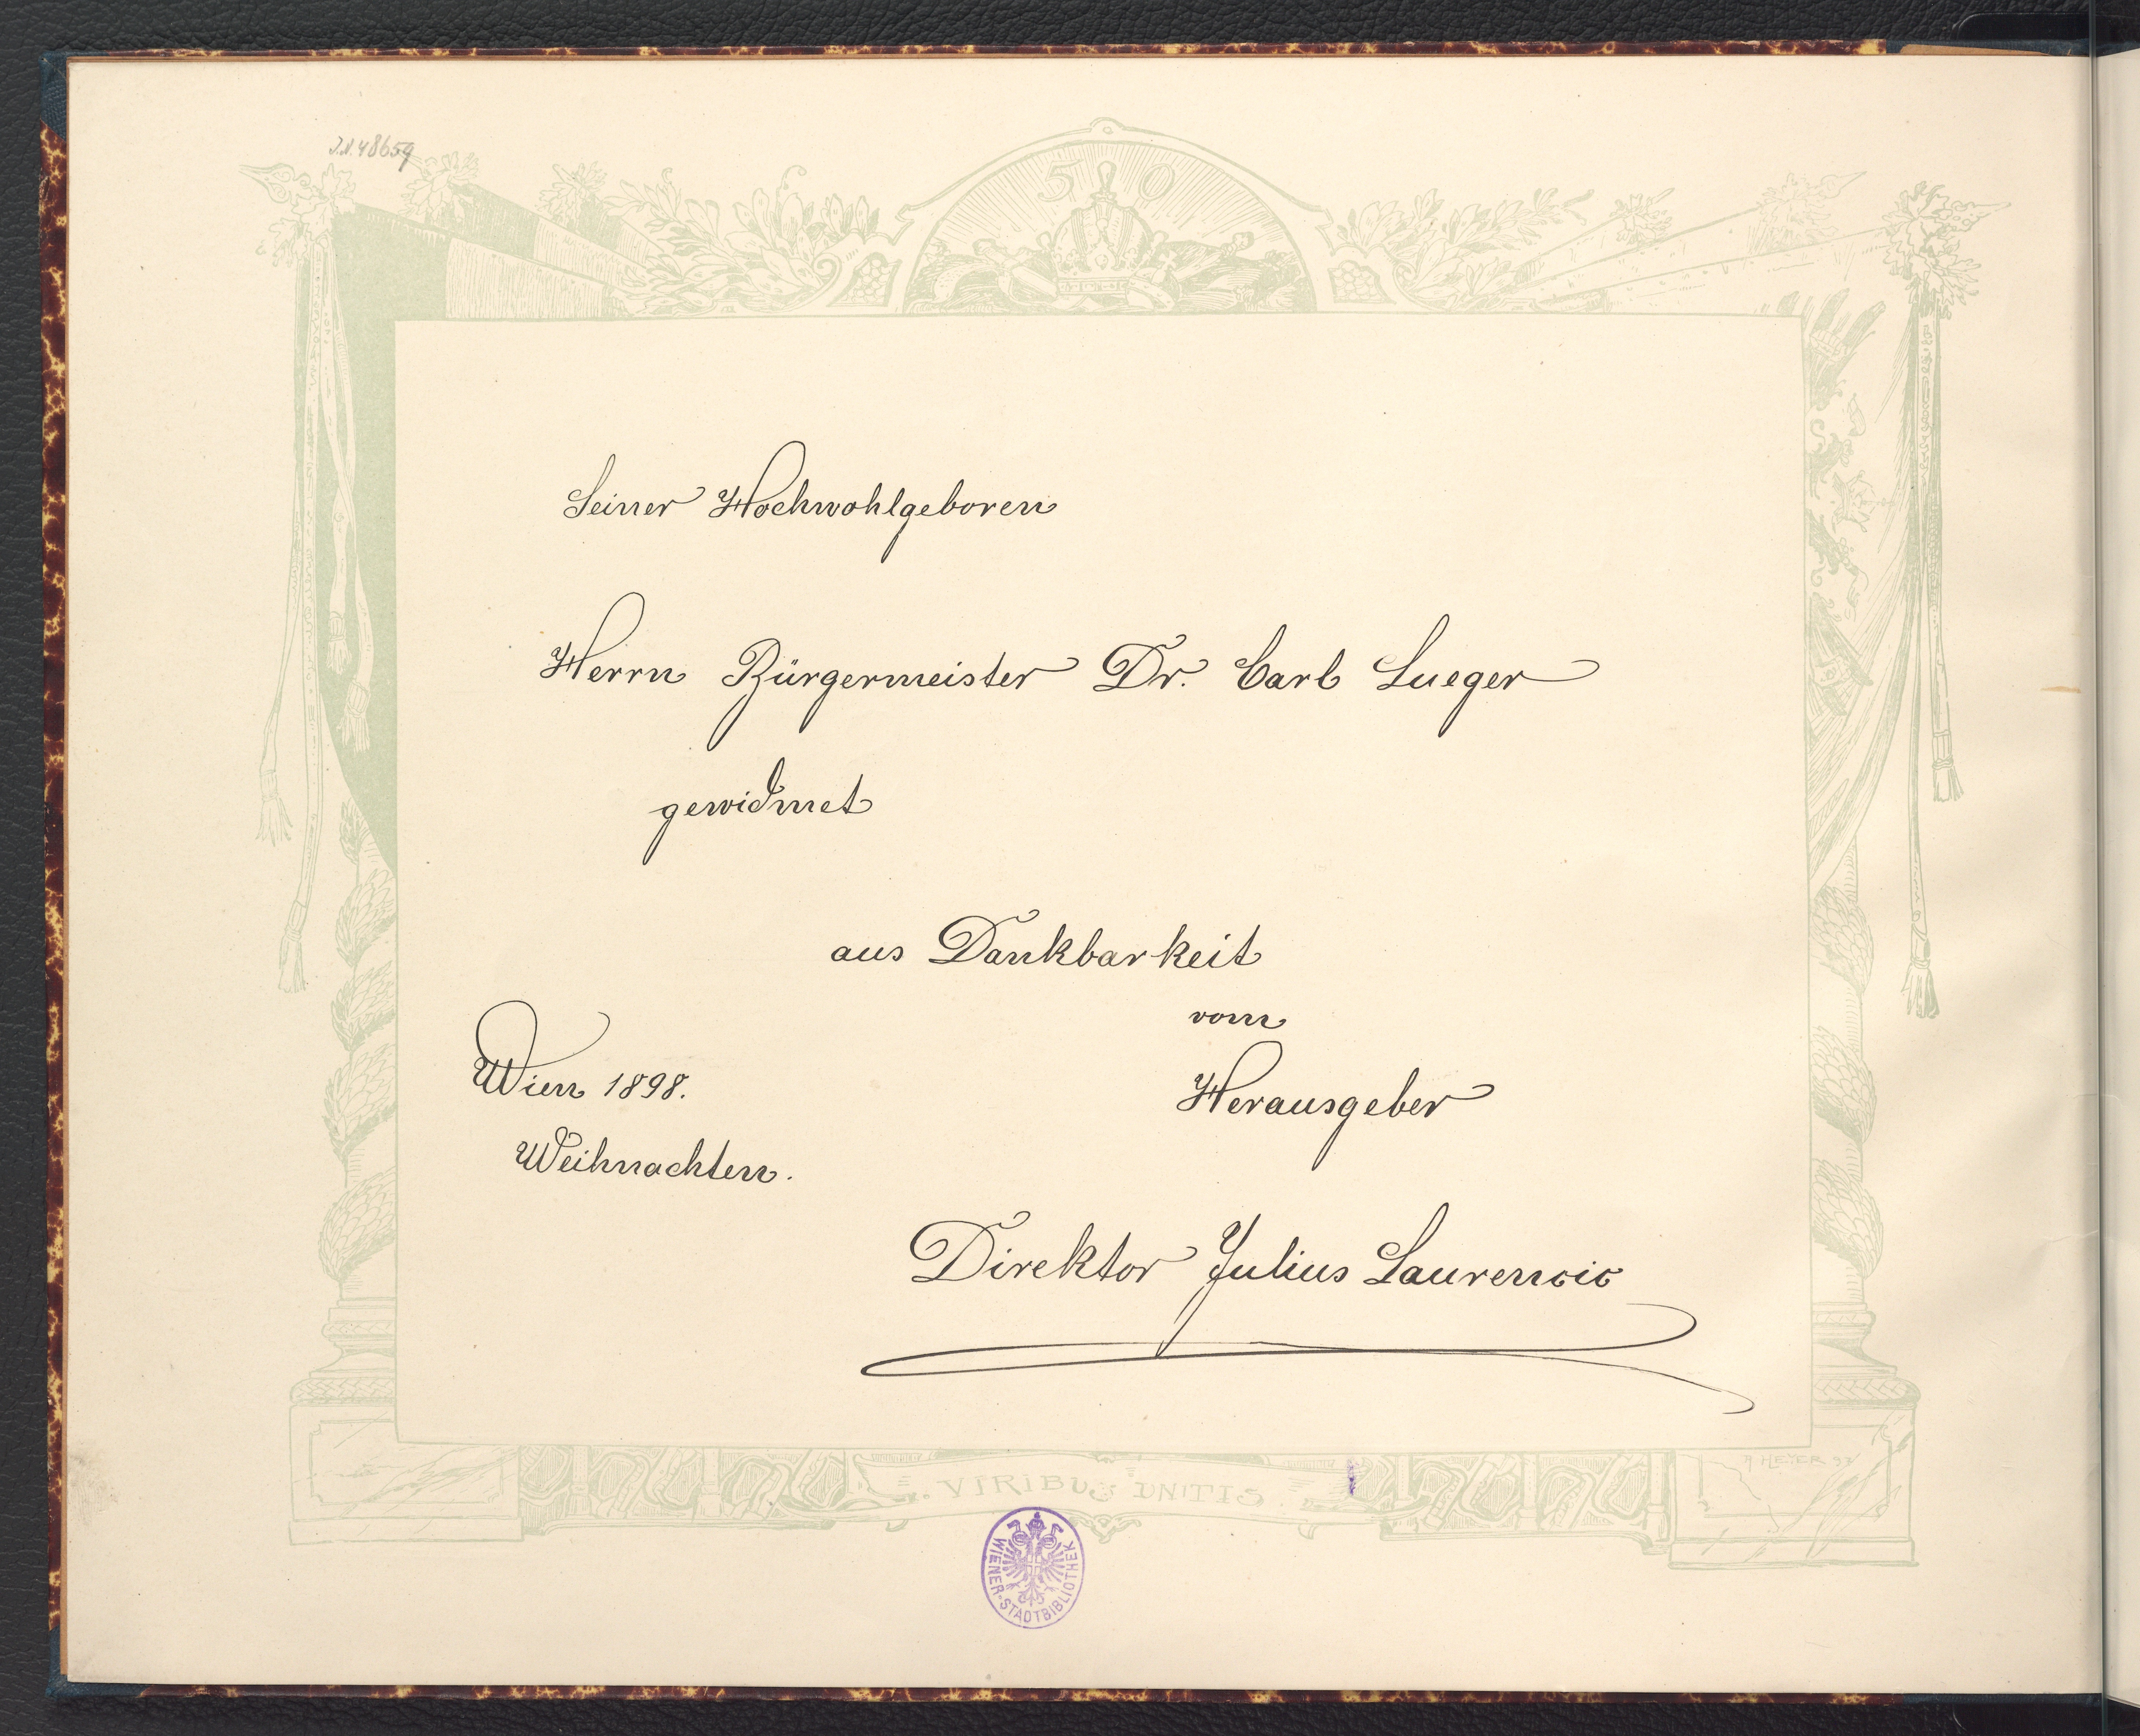 J.N. 48659
50
Seiner Hochwohlgeboren
Herrn Bürgermeister Dr. Carl Lueger
gewidmet
aus Dankbarkeit
vom
Wien 1898.
Herausgeber
Weihnachten.
Direktor Julius Laurencic
A HEYER
. VIRIBUS UNITIS .
WIENER-STADTBIBLIOTHEK